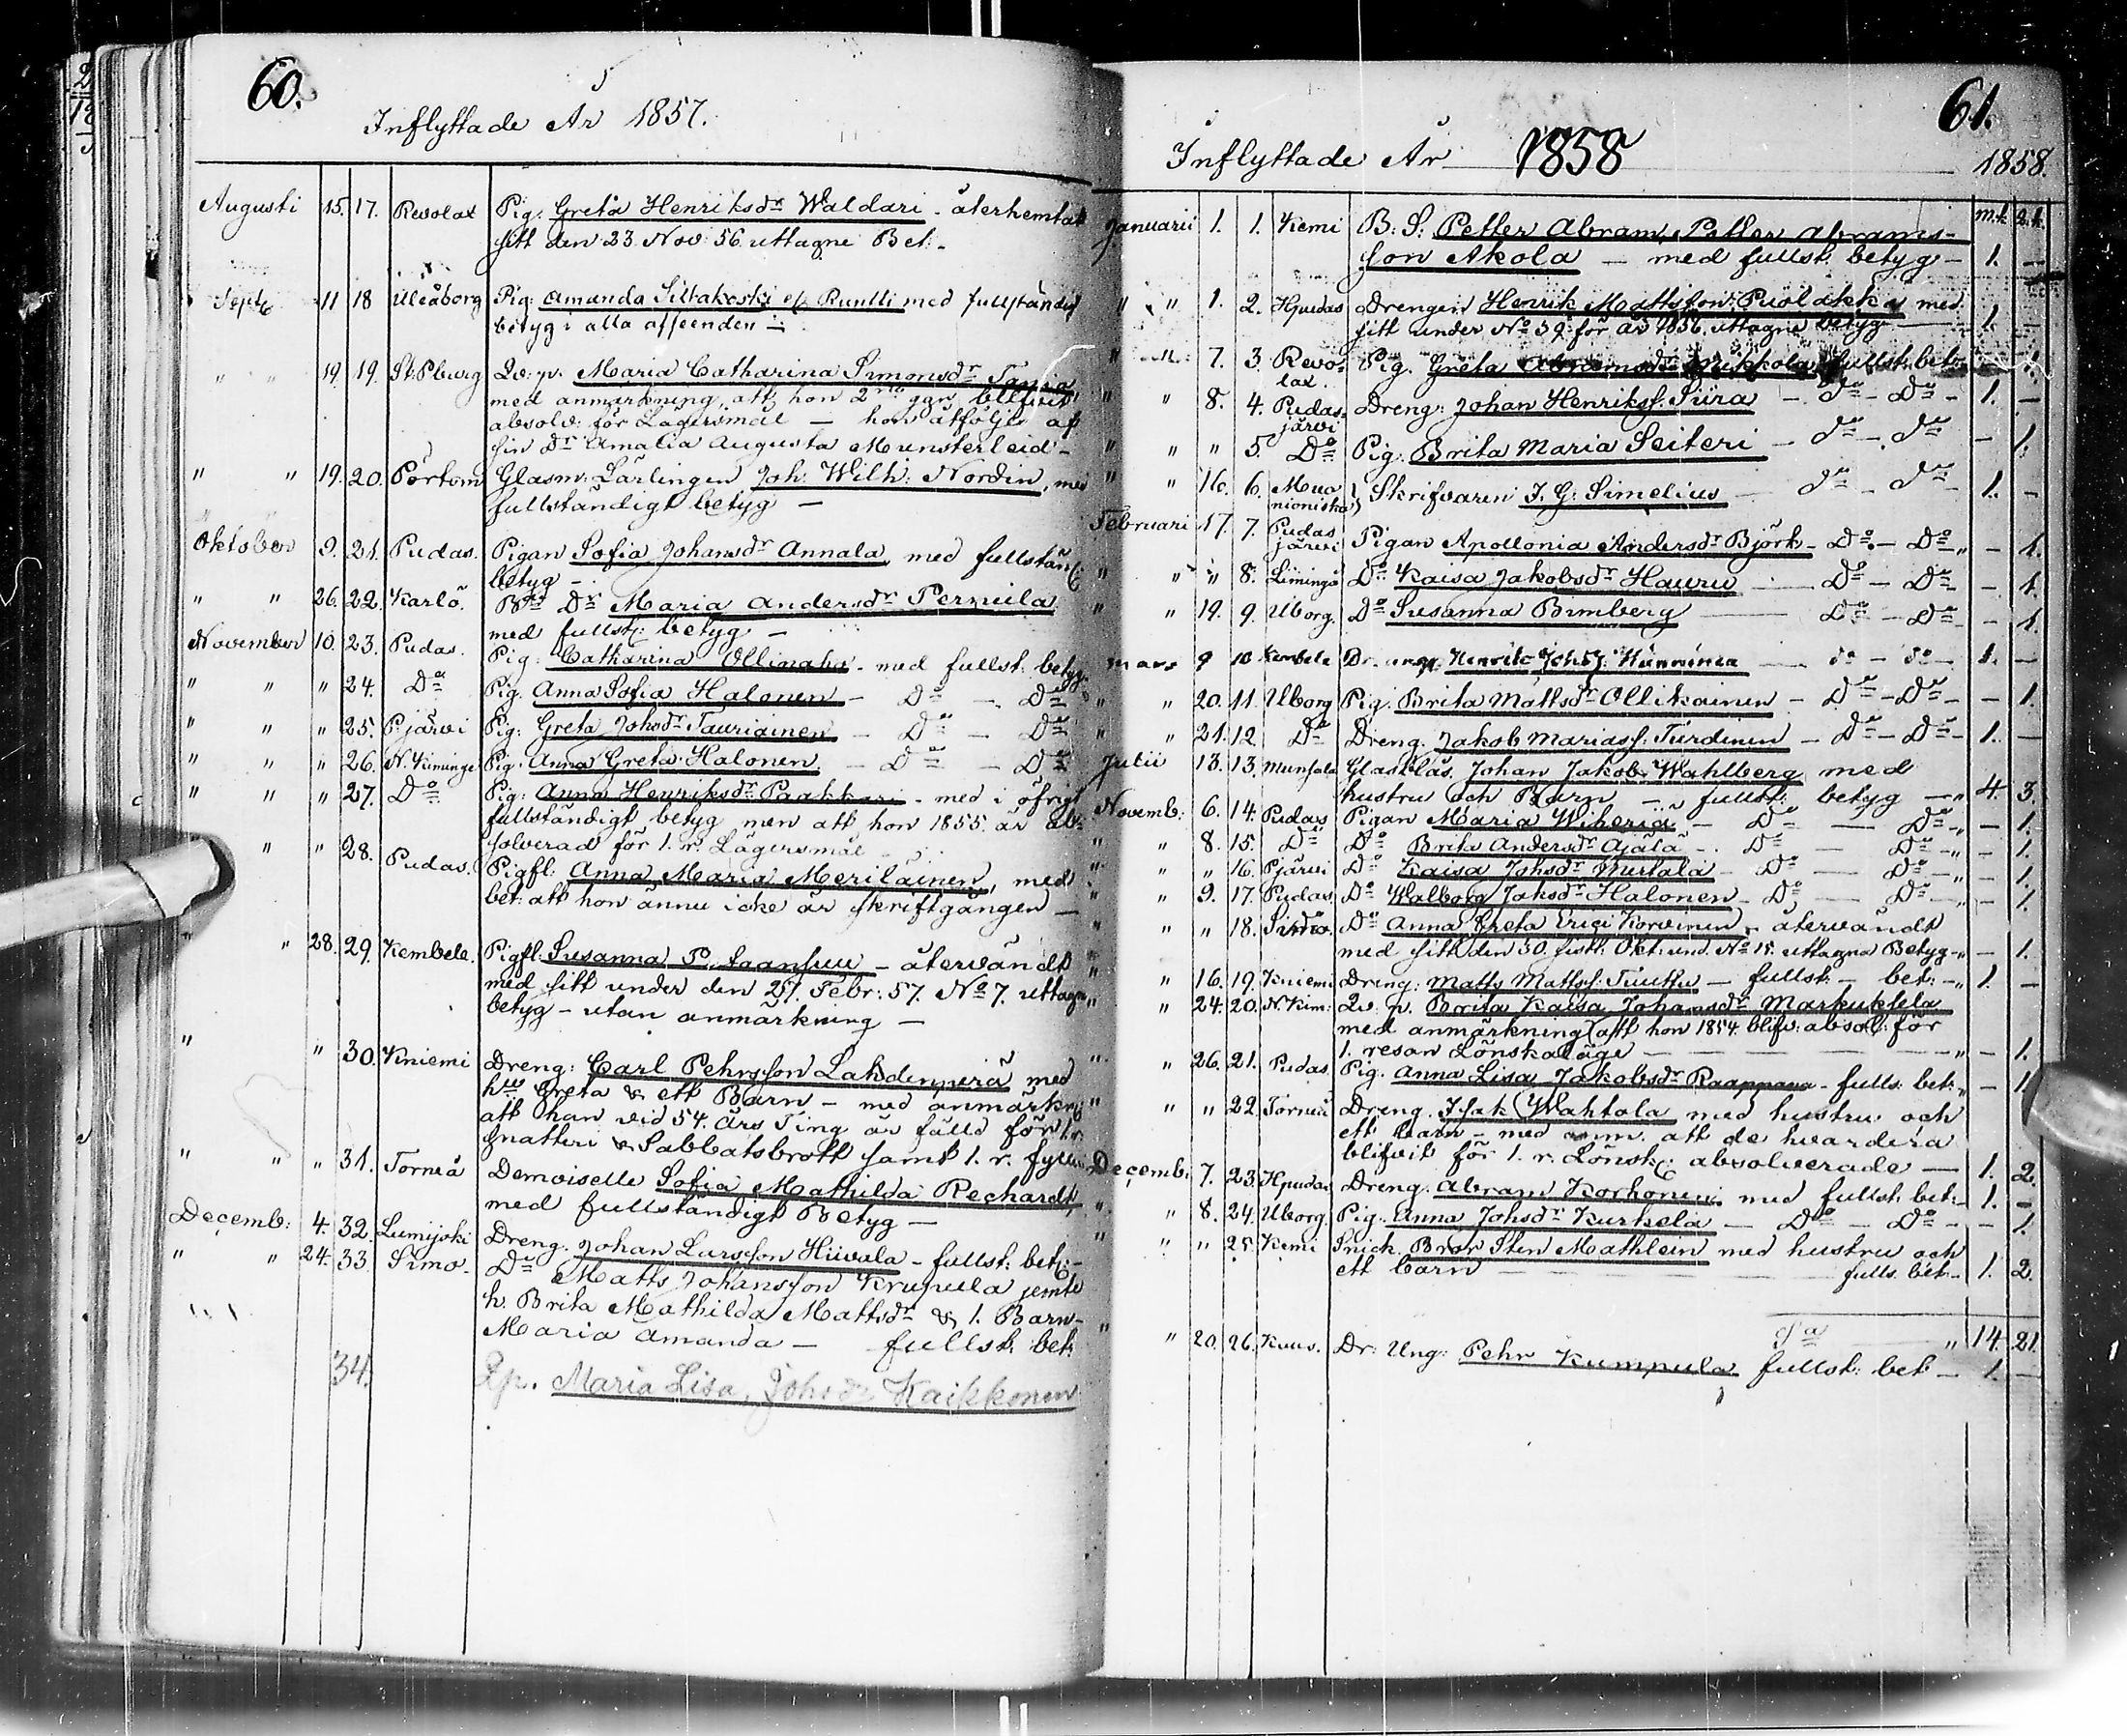 60.
Inflyttade År 1857.
Augusti 15. 17. Revolax Pig: Greta Henriksdr Waldari - återhemtat
sitt den 23 Nov: 56 uttagne Bet:-
Septb 11 18 Uleåborg Pig: Amanda Siltakoski ell Ruutti med fullständigt
betyg i alla afseenden -
" " 19 19. St:Pburg Qv: p. Maria Catharina Simonsdr
med anmärkning att hon 2 gån blifvit
absolv: för Lägersmål - hon åtföljes af
sin Dr Amalia Augusta Munsterleid -
" " 19. 20. Pörtom Glasm: Lärlingen Joh: Wilh: Nordin, med
fullständigt betyg -
Oktober 9. 21. Pudas. Pigan Sofia Johansdr Annala, med fullstän:
betyg -
" " 26. 22. Karlö. Dr Maria Andersdr Pernula
med fullst: betyg -
November 10. 23. Pudas. Pig: Catharina - med fullst: betyg.
" " " 24. Do Pig. Anna Sofia Halonen - Do - Do
" " " 25. Pjärvi Pig: Greta Johsdr Tauriainen - Do - Do
" " " 26. N. Kiminge Pig. Anna Greta Halonen - Do - Do
" " " 27. Do Pig: Anna Henriksdr Paakkari - med i öfrigt
fullständigt betyg men att hon 1855 är ab-
solverad för 1. r. Lägersmål
" " 28. Pudas. Pigfl: Anna Maria Meriläinen, med
bet: att hon ännu icke är skriftgången -
" " 28. 29. Kembele. Pigfl: Susanna P. - återvändt
med sitt under den 27. Febr: 57. No 7. uttagne
betyg - utan anmärkning -
" " 30. Kniemi Dreng: Carl Pehrsson Lahdenperä med
hu Greta & ett Barn - med anmärkn:
att han vid 54. års Ting är fälld för 1. r.
Snatteri & Sabbatsbrott samt 1. r. fylleri
" " " 31. Torneå Demoiselle Sofia Mathilda Rechardt,
med fullständigt Betyg -
Decemb: 4. 32. Lumijoki Dreng. Johan Larsson Hiivala - fullst: bet: -
" " 24. 33. Simo. Do Matts Johansson Krupula jemte
h. Brita Mathilda Mattsdr & 1. Barn -
Maria Amanda - fullst: bet:
34. Qp. Maria Lisa, Johsdr Kaikkonen
61.
Inflyttade År 1858 1858.
m.k. q.k.
Januarii 1. 1. Kemi B: S: Petter Abram, Petter Abrams-
son Akola - med fullst. betyg - 1. -
" " 1. 2. Hpudas Drengen Henrik Mattsson Puolakka med
sitt under No 39: för år 1856. uttagne betyg - 1. -
" " 7. 3. Revo-
lax. Pig. Greta fullst: bet: - 1.
" " 8. 4. Pudas-
järvi Dreng: Johan Henrikss. Siira - Do - Do - 1. -
" " " 5. Do Pig: Brita Maria Seiteri - Do - Do - 1.
" " 16. 6. Muo
nioniska Skrifvaren J. G: Simelius - Do - Do - 1. -
Februari 17. 7. Pudas
järvi Pigan Apollonia Andersdr Björk - Do - Do - 1.
" " " 8. Limingo Do Kaisa Jakobsdr Hauru - Do - Do - 1.
" " 19. 9. Uborg. Do Susanna Brunberg - Do - Do - 1.
Mars 9 10 Kembele Dr. ung. Henrik Johss: Hänninen - do - do - 1. -
" " 20. 11. Uborg Pig. Brita Mattsdr Ollikainen - Do - Do - 1.
" " 21. 12 Do Dreng. Jakob Mariass: Turdinen - Do - Do - 1. -
Julii 13. 13. Munsala Glasblås. Johan Jakob Wahlberg med
hustru och Barn - fullst: betyg - 4. 3.
Novemb: 6. 14. Pudas Pigan Maria Wiheriä - Do - Do - 1.
" " 8. 15. Do Do Brita Andersdr Ajälä - Do - Do - 1.
" " " 16. Pjärvi Do Kaisa Johsdr - Do - Do - 1.
" " 9. 17. Pudas Do Walborg Joksdr Halonen - Do - Do - 1.
" " " 18. Simo. Do Anna Greta Erici Korvinen - återvändt
med sitt den 30. sistl: Okt: und. No 15. uttagna Betyg - - 1.
" " 16. 19. Kniemi Dreng: Matts Mattss: Tuuttu - fullst - bet: - 1. -
" " 24. 20. N. Kim: Qv. p. Brita Kaisa Johansdr Markuksela
med anmärkning att hon 1854. blifv: absol: för
1. resan Lönskaläge - - 1.
" " 26. 21. Pudas. Pig. Anna Lisa Jakobsdr Raappana - fulls. bet: - 1.
" " " 22. Torneå Dreng. Isak Wahtola med hustru och
ett barn - med anm. att de hvardera
blifvit för 1. r. Lönsk: absolverade - 1. 2.
Decemb: 7. 23. Hpudas Dreng. Abram Korhonen med fullst. bet: - 1. -
" " 8. 24. Uborg. Pig. Anna Johsdr Kurkela - Do - Do - - 1.
" " " 25. Kemi Snick. Bror Sten Mathlein med hustru och
ett barn - fulls. bet: - 1. 2.
Sa " 14. 21.
" " 20. 26. Kuus. Dr: Ung: Pehr Kumpula fullst: bet - 1. -